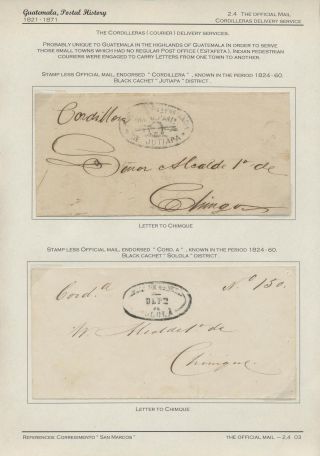 Guatemala, Postal History
1821-1871
2.4 The Official Mail
Cordilleras delivery service
The Cordilleras (courier) delivery services.
Probably unique to Guatemala in the highlands of Guatemala in order to serve
those small towns which had no regular Post office (Estafeta), Indian pedestrian
couriers were engaged to carry Letters from one town to another.
Stamp less Official mail, endorsed " Cordillera " , known in the period 1824-60.
Black cachet " Jutiapa " district .
Cordillera
JUTIAPA
Señor Alcalde 1º de
Letter to Chimique
Stamp less Official mail, endorsed " Cord. a " , known in the period 1824-60.
Black cachet " Solola " district .
Cord.a
Nº 150.
SOLOLA
Alcalde 1º de
Chimique.
Letter to Chimique
References: Corregimiento " San Marcos "
the official mail — 2.4 03